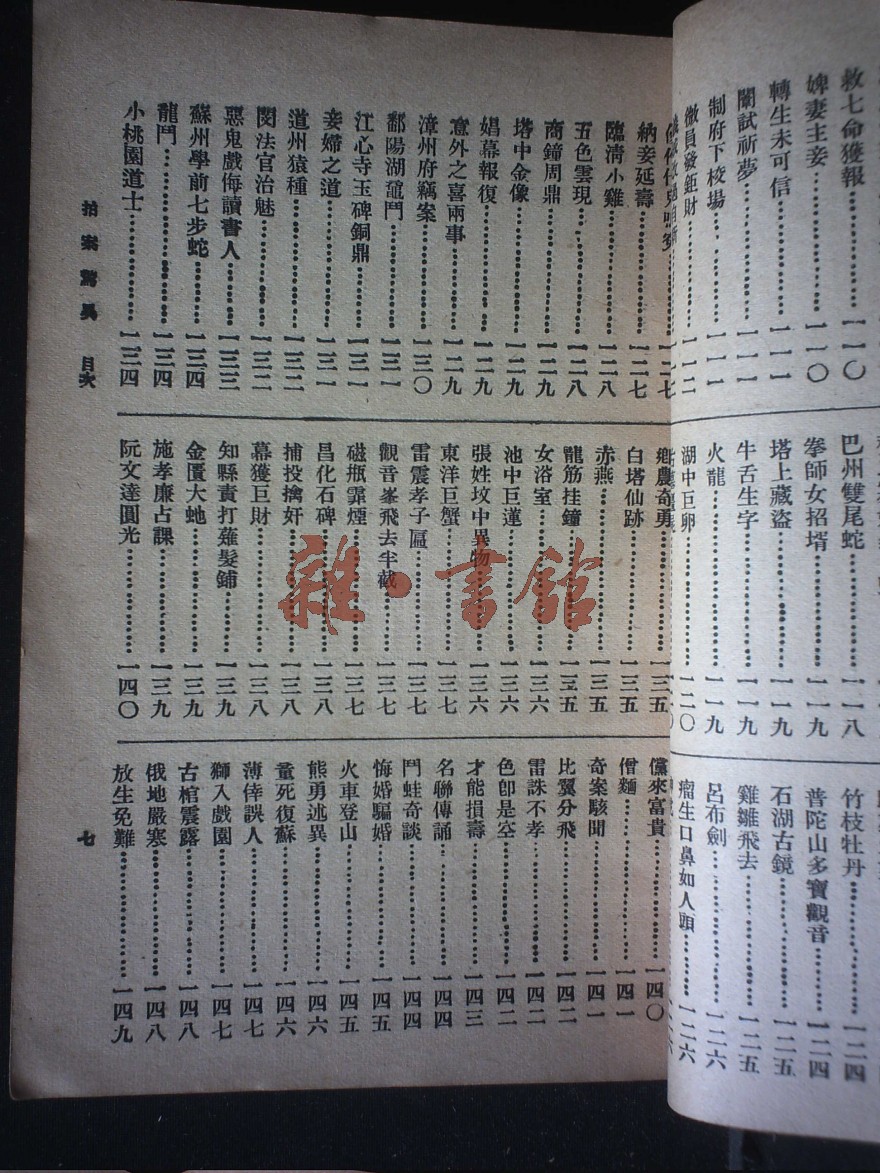 救七命獲報 一一〇
婢妻主妾 一一〇
轉生未可信 一一一
闈試祈夢 一一一
制府下校場 一一一
徽員發鉅財 一一二
巴州雙尾蛇 一一八
拳師女招壻 一一九
塔上藏盜 一一九
牛舌生字 一一九
火龍 一一九
湖中巨卵 一二〇
竹枝牡丹 一二四
普陀山多寶觀音 一二四
石湖古鏡 一二五
雞雛飛去 一二五
呂布劍 一二六
瘤生口鼻如人頭 一二六
一二七
納妾延壽 一二七
臨淸小雞 一二八
五色雲現 一二八
商鐘周鼎 一二九
塔中金像 一二九
娼幕報復 一二九
意外之喜兩事 一二九
漳州府竊案 一三〇
鄱陽湖黿鬥 一三一
江心寺玉碑銅鼎 一三一
妾婦之道 一三一
道州猿種 一三二
閔法官治魅 一三二
惡鬼戲侮讀書人 一三三
蘇州學前七步蛇 一三四
龍鬥 一三四
小桃園道士 一三四
鄉農奇勇 一三五
白塔仙跡 一三五
赤燕 一三五
龍筋挂鐘 一三五
女浴室 一三六
池中巨蓮 一三六
張姓坟中異物 一三六
東洋巨蟹 一三七
雷震孝子區 一三七
觀音峯飛去半截 一三七
磁瓶霏煙 一三七
昌化石碑 一三八
捕投擒奸 一三八
幕獲巨財 一三八
知縣責打薙髮鋪 一三九
金匱大虵 一三九
施孝廉占課 一三九
阮文達圓光 一四〇
儻來富貴 一四〇
僧麵 一四一
奇案駭聞 一四一
比翼分飛 一四二
雷誅不孝 一四二
色卽是空 一四二
才能損壽 一四三
名聯傳誦 一四四
鬥蛙奇談 一四四
悔婚騙婚 一四五
火車登山 一四五
熊勇述異 一四六
量死復蘇 一四六
薄倖誤人 一四七
獅入戲園 一四七
古棺震露 一四八
俄地嚴寒 一四八
放生免難 一四九
拍案驚異 目次
七
雜·書館